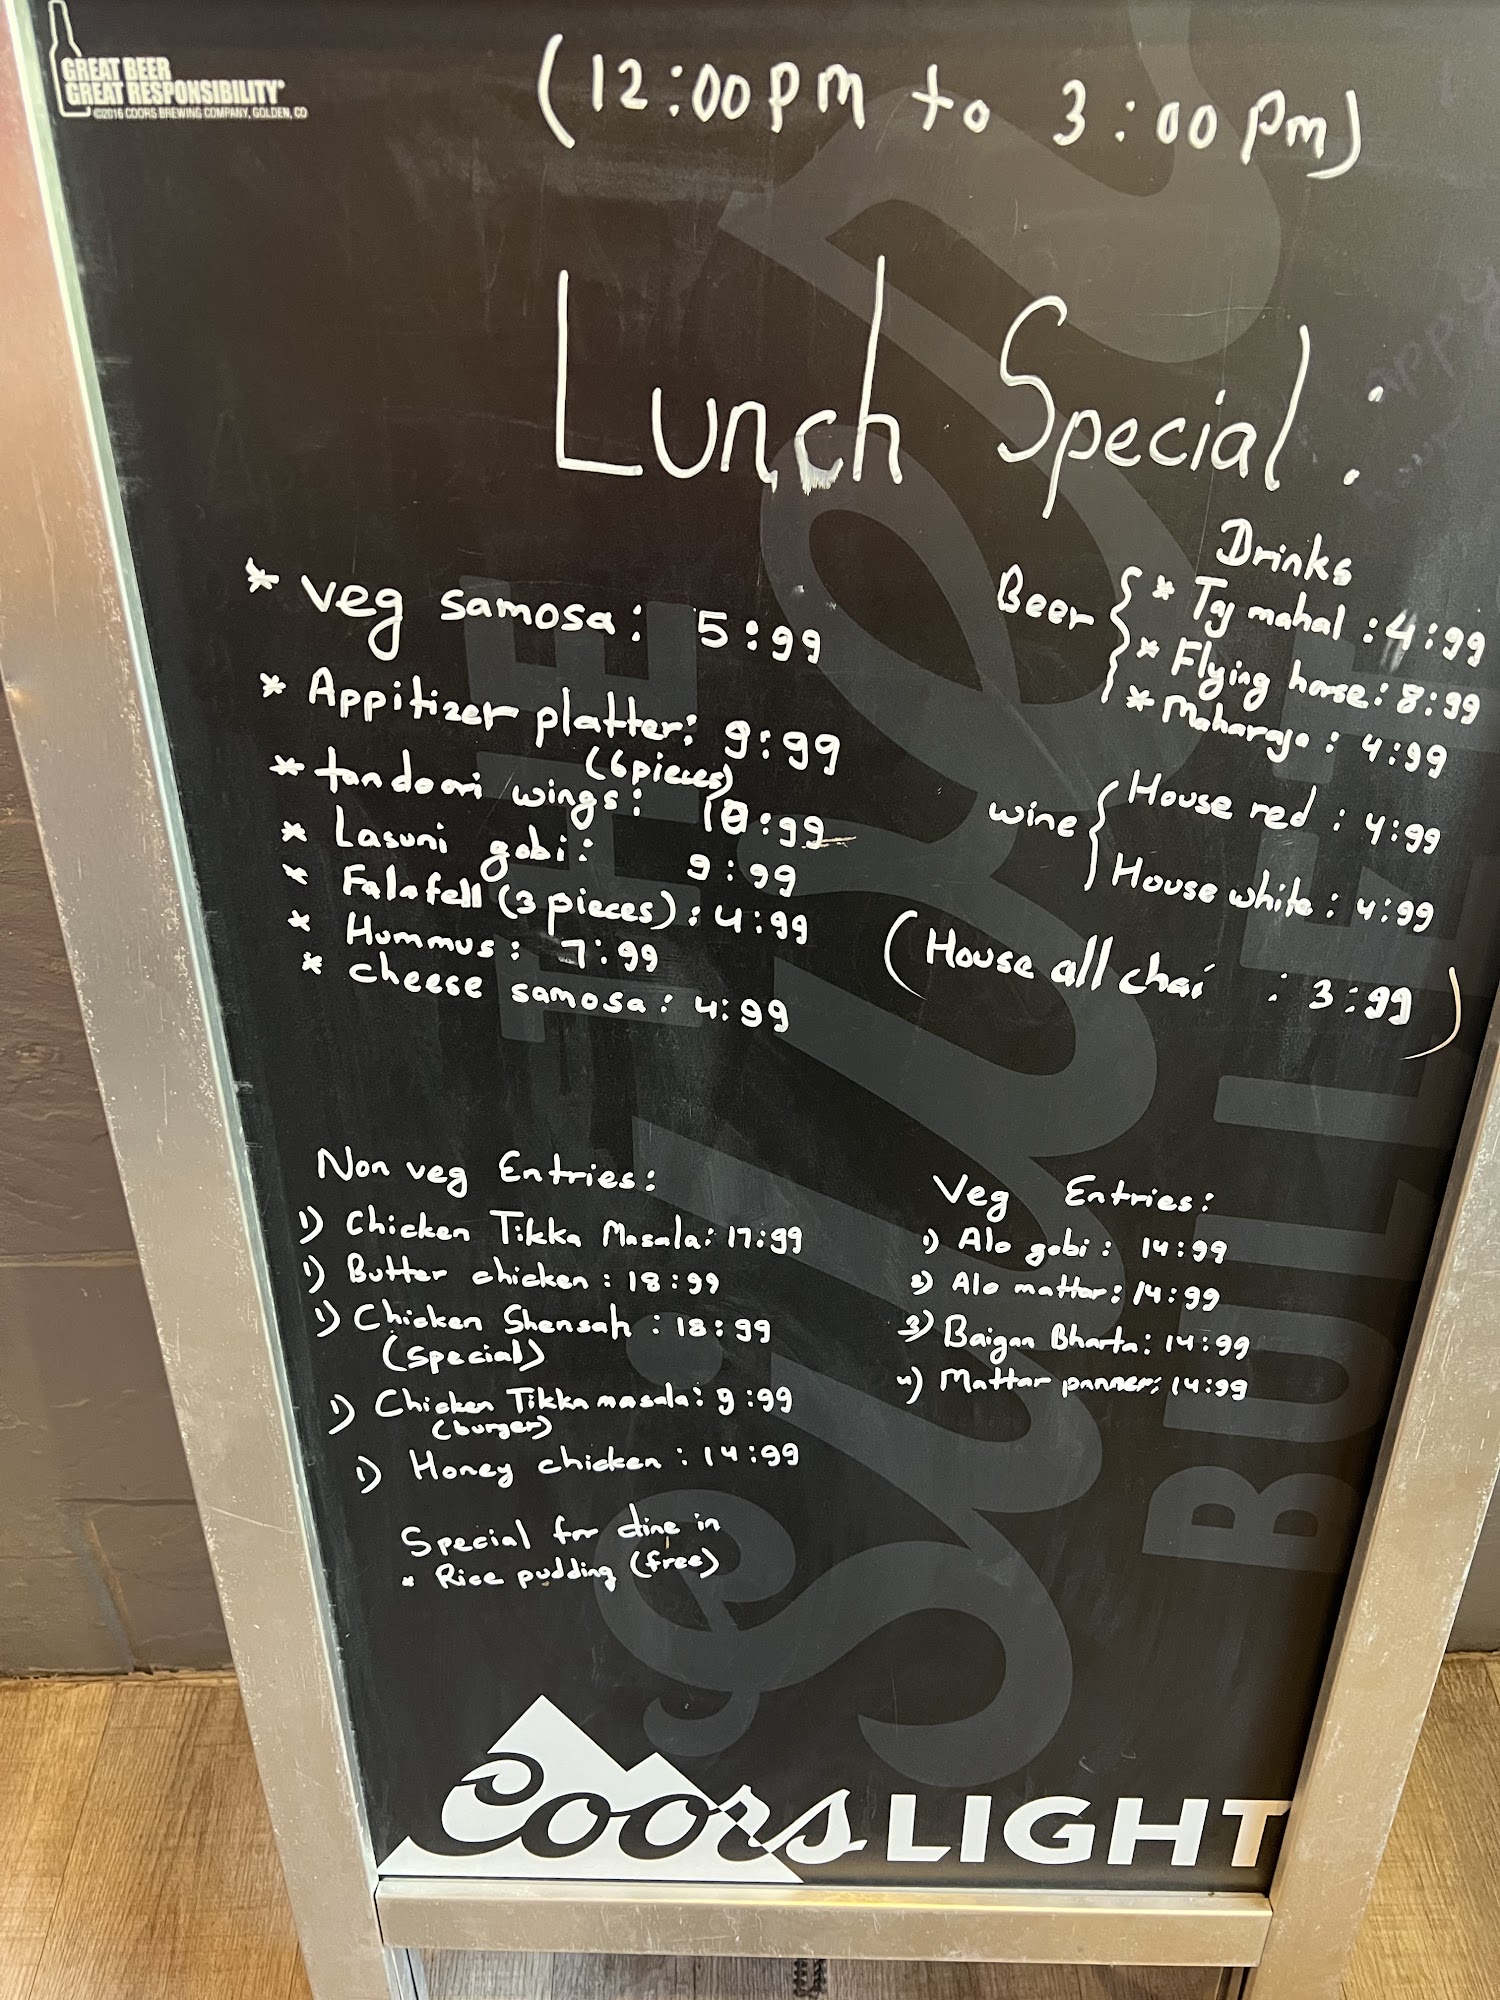 GREAT BEER
GREAT RESPONSIBILITY®
©2016 COORS BREWING COMPANY, GOLDEN, CO
(12:00pm to 3:00pm)
Lunch Special:
* veg samosa: 5:99
* Appitizer platter: 9:99
(6 pieces)
* tandoori wings: 10:99
* Lasuni gobi: 9:99
* Falafell (3 pieces): 4:99
* Hummus: 7:99
* cheese samosa: 4:99
Drinks
Beer { * Taj mahal: 4:99
* Flying horse: 8:99
* Maharaja: 4:99
wine { House red: 4:99
House white: 4:99
(House all chai : 3:99)
Non veg Entries:
1) Chicken Tikka Masala: 17:99
1) Butter chicken: 18:99
1) Chicken Shensah: 18:99
(special)
1) Chicken Tikka masala: 9:99
(burger)
1) Honey chicken: 14:99
Special for dine in
* Rice pudding (free)
Veg Entries:
1) Alo gobi: 14:99
2) Alo mattar: 14:99
3) Baigan Bharta: 14:99
4) Mattar pnnner: 14:99
THE
Silver
BULLET
Coors LIGHT